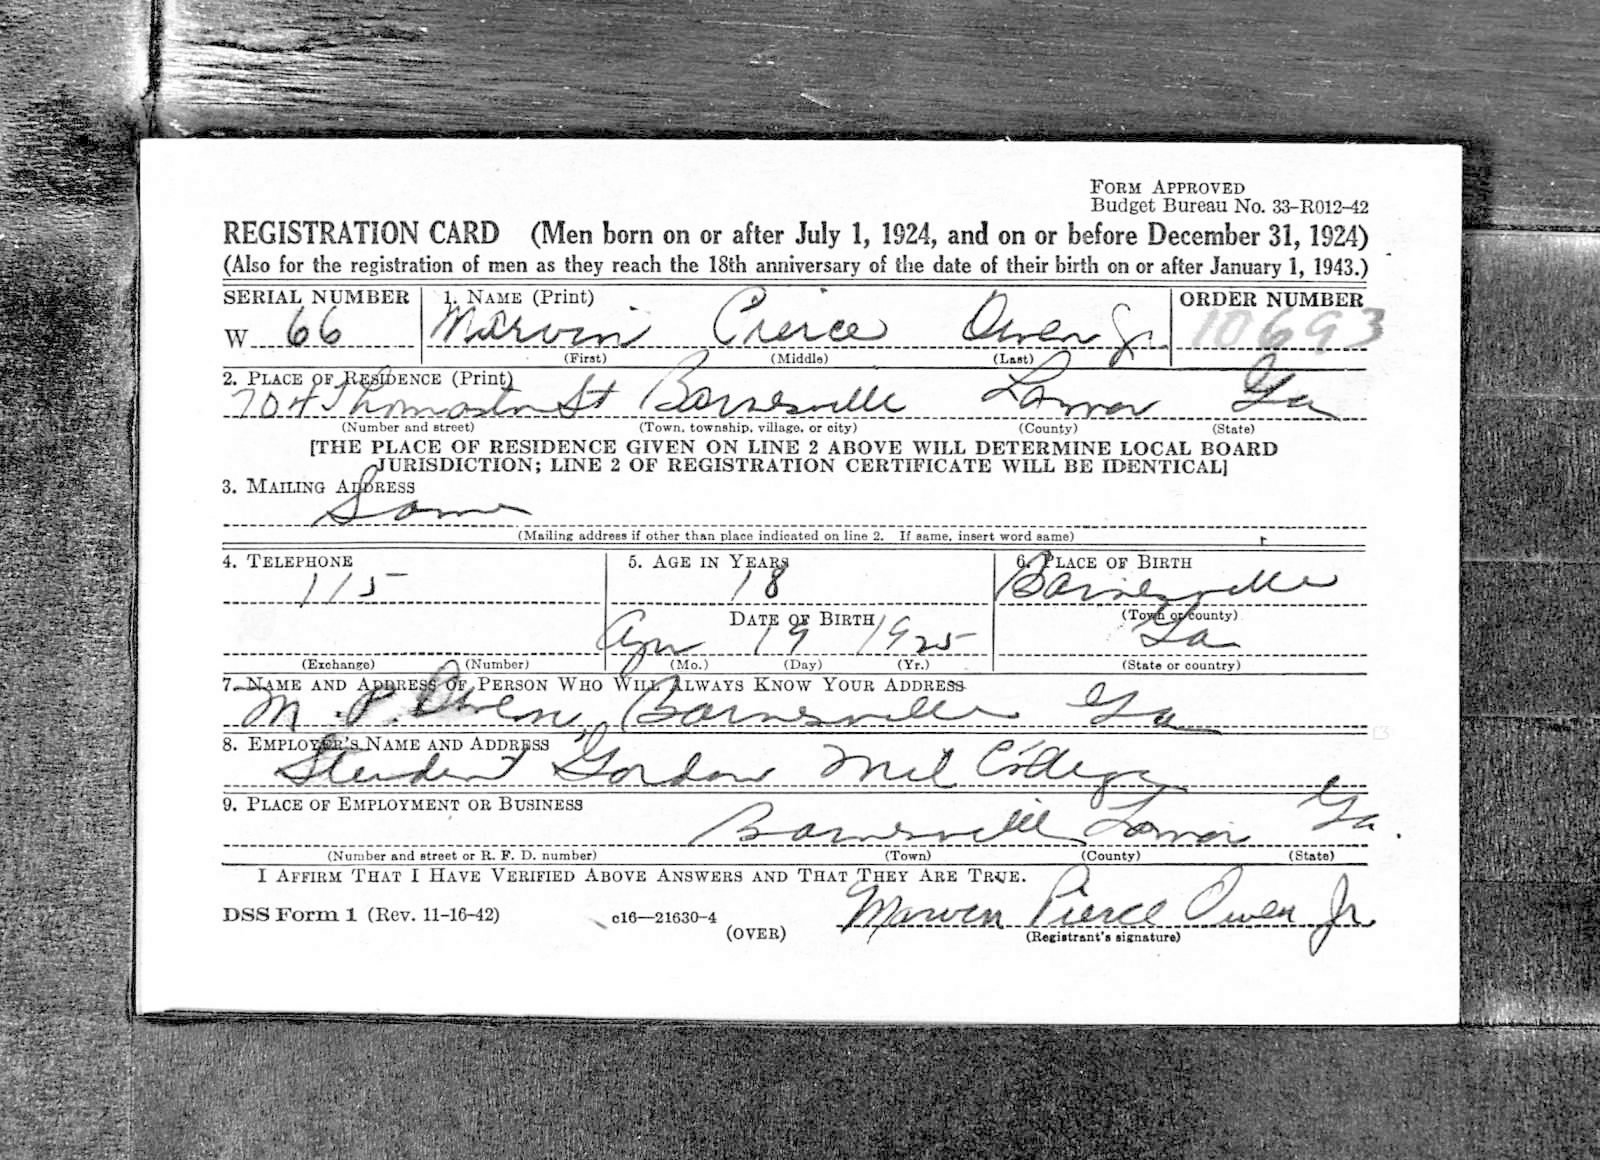 FORM APPROVED
Budget Bureau No. 33-R012-42
REGISTRATION CARD (Men born on or after July 1, 1924, and on or before December 31, 1924)
(Also for the registration of men as they reach the 18th anniversary of the date of their birth on or after January 1, 1943.)
SERIAL NUMBER 1. NAME (Print) ORDER NUMBER
W 66 Marvin Pierce Owen Jr. 10693
(First) (Middle) (Last)
2. PLACE OF RESIDENCE (Print)
704 Thomaston St Barnesville Lamar Ga
(Number and street) (Town, township, village, or city) (County) (State)
[THE PLACE OF RESIDENCE GIVEN ON LINE 2 ABOVE WILL DETERMINE LOCAL BOARD
JURISDICTION; LINE 2 OF REGISTRATION CERTIFICATE WILL BE IDENTICAL]
3. MAILING ADDRESS
Same
(Mailing address if other than place indicated on line 2. If same, insert word same)
4. TELEPHONE 5. AGE IN YEARS 6. PLACE OF BIRTH
115 18 Barnesville
DATE OF BIRTH (Town or county)
Apr 19 1925 Ga
(Exchange) (Number) (Mo.) (Day) (Yr.) (State or country)
7. NAME AND ADDRESS OF PERSON WHO WILL ALWAYS KNOW YOUR ADDRESS
M. P. Owen, Barnesville Ga
8. EMPLOYER'S NAME AND ADDRESS
Student Gordon Mil College
9. PLACE OF EMPLOYMENT OR BUSINESS
Barnesville Lamar Ga.
(Number and street or R. F. D. number) (Town) (County) (State)
I AFFIRM THAT I HAVE VERIFIED ABOVE ANSWERS AND THAT THEY ARE TRUE.
DSS Form 1 (Rev. 11-16-42) c16—21630-4 Marvin Pierce Owen Jr
(OVER) (Registrant's signature)